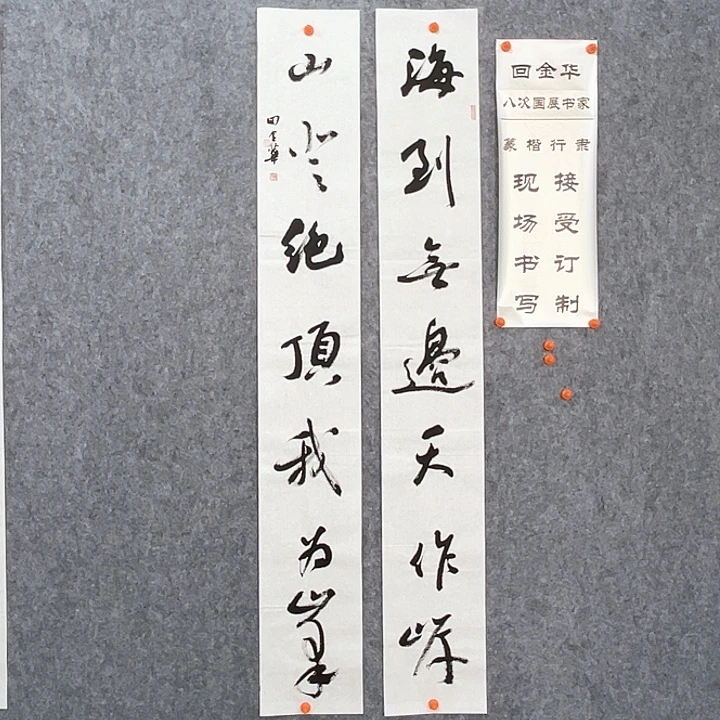 海到無邊天作岸
山登絶頂我为峯
回金華
回金华
八次国展书家
篆楷行隶
现场书写
接受订制